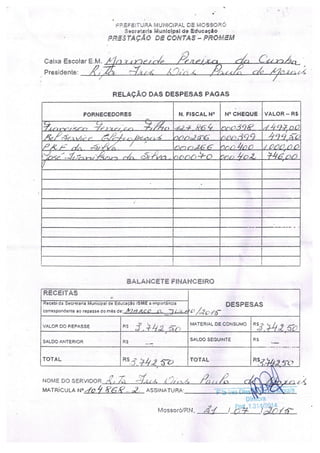 PREFEITURA MUNICIPAL DE MOSSORÓ
Secretaria Municipal de Educação
PRESTAÇÃO DE CONTAS - PROHEM
Caixa Escolar E.M. Marineide Pereira da Cunha
Presidente: Rita Dias Paula de Morais
RELAÇÃO DAS DESPESAS PAGAS
FORNECEDORES N. FISCAL Nº Nº CHEQUE VALOR – R$
Francisco Ferreira Filho 127.864 000398 1497,00
Ref Service 000256 000399 499,50
PRF da Silva 000266 000400 1000,00
José da Silva 000070 000402 746,00
BALANCETE FINANCEIRO
RECEITAS
DESPESAS
Recebi da Secretaria Municipal de Educação /SME a importância
correspondente ao repasse do mês de: Março a /2015
VALOR DO REPASSE R$ 3.742,50 MATERIAL DE CONSUMO R$ 3.742,50
SALDO ANTERIOR R$ — SALDO SEGUINTE R$ —
TOTAL R$ 3.742,50 TOTAL R$ 3.742,50
NOME DO SERVIDOR Rita Dias Paula de Morais
MATRÍCULA Nº 104868.2 ASSINATURA:
Diretora
Mossoró/RN, 21 / 07 / 2015